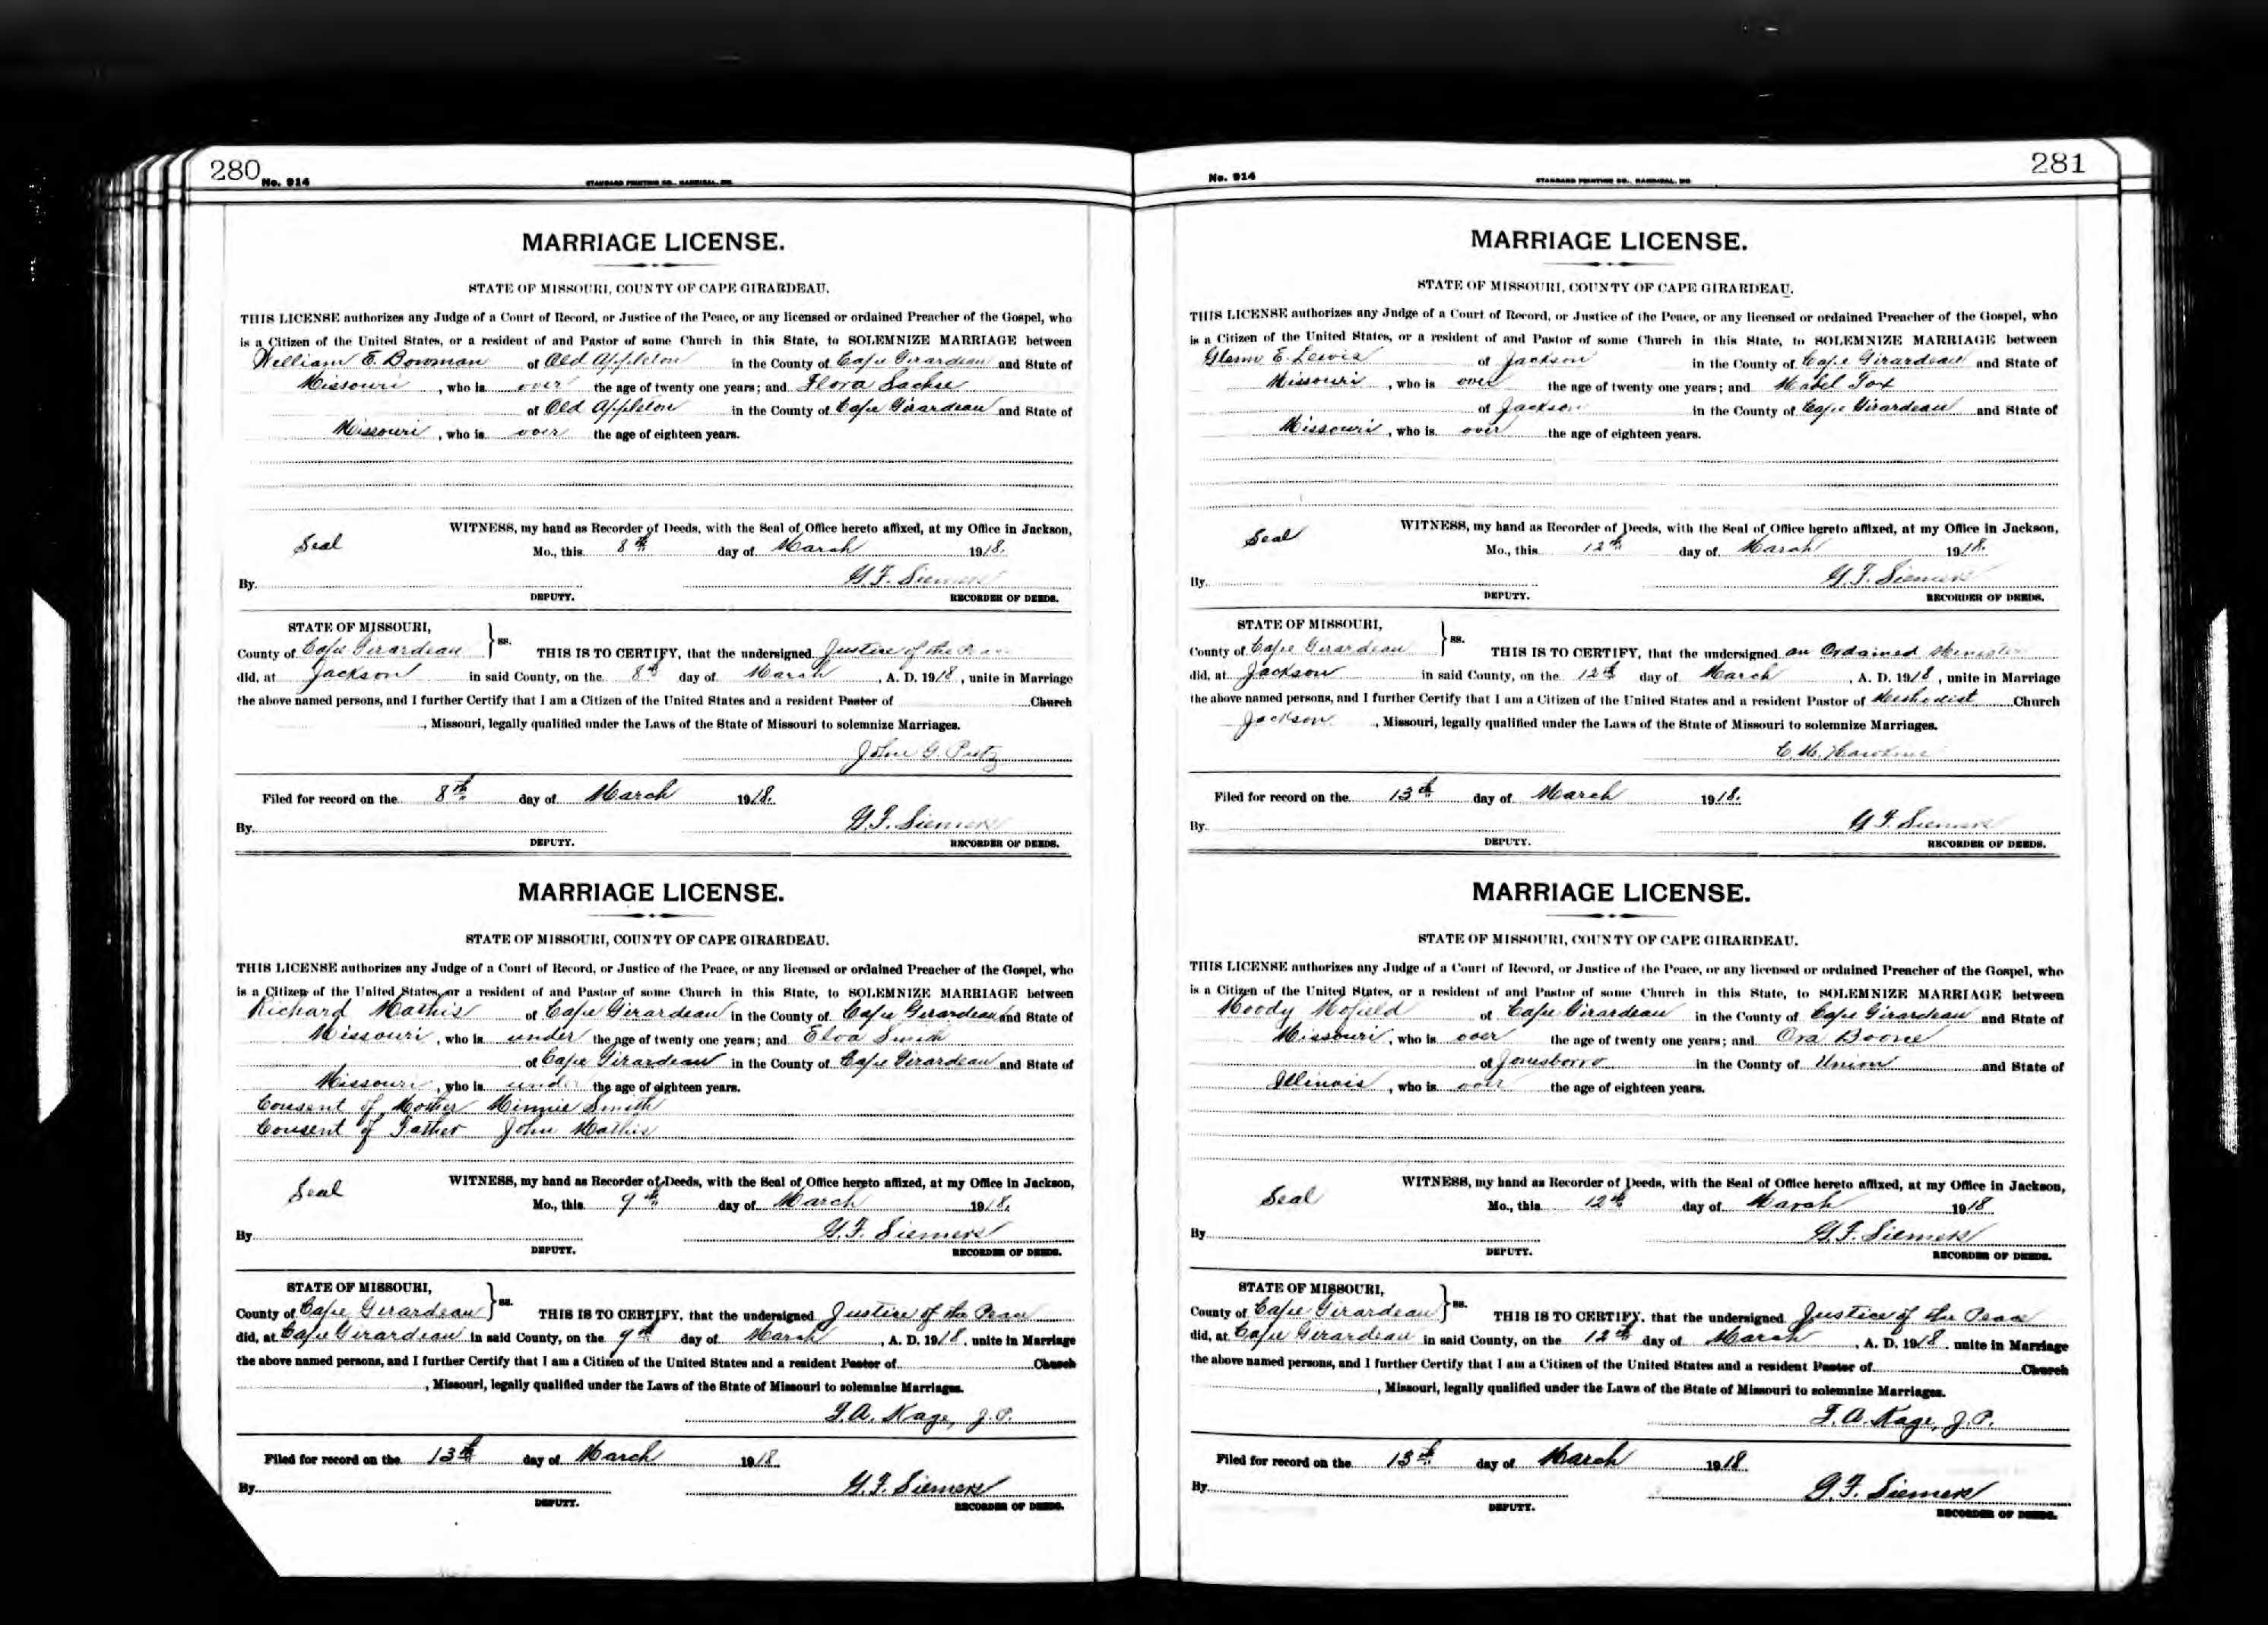 280
No. 914
STANDARD PRINTING CO., HANNIBAL, MO.
MARRIAGE LICENSE.
STATE OF MISSOURI, COUNTY OF CAPE GIRARDEAU.
THIS LICENSE authorizes any Judge of a Court of Record, or Justice of the Peace, or any licensed or ordained Preacher of the Gospel, who
is a Citizen of the United States, or a resident of and Pastor of some Church in this State, to SOLEMNIZE MARRIAGE between
William E. Bowman of Old Appleton in the County of Cape Girardeau and State of
Missouri, who is over the age of twenty one years; and Flora Sachse
of Old Appleton in the County of Cape Girardeau and State of
Missouri, who is over the age of eighteen years.
WITNESS, my hand as Recorder of Deeds, with the Seal of Office hereto affixed, at my Office in Jackson,
Seal
Mo., this 8th day of March 1918.
By G. F. Siemers
DEPUTY. RECORDER OF DEEDS.
STATE OF MISSOURI,
County of Cape Girardeau } ss. THIS IS TO CERTIFY, that the undersigned Justice of the Peace
did, at Jackson in said County, on the 8th day of March, A. D. 1918, unite in Marriage
the above named persons, and I further Certify that I am a Citizen of the United States and a resident Pastor of Church
, Missouri, legally qualified under the Laws of the State of Missouri to solemnize Marriages.
John G. Putz
Filed for record on the 8th day of March 1918.
By G. F. Siemers
DEPUTY. RECORDER OF DEEDS.
MARRIAGE LICENSE.
STATE OF MISSOURI, COUNTY OF CAPE GIRARDEAU.
THIS LICENSE authorizes any Judge of a Court of Record, or Justice of the Peace, or any licensed or ordained Preacher of the Gospel, who
is a Citizen of the United States, or a resident of and Pastor of some Church in this State, to SOLEMNIZE MARRIAGE between
Richard Mathis of Cape Girardeau in the County of Cape Girardeau and State of
Missouri, who is under the age of twenty one years; and Elva Smith
of Cape Girardeau in the County of Cape Girardeau and State of
Missouri, who is under the age of eighteen years.
Consent of Mother Minnie Smith
Consent of Father John Mathis
WITNESS, my hand as Recorder of Deeds, with the Seal of Office hereto affixed, at my Office in Jackson,
Seal
Mo., this 9th day of March 1918.
By G. F. Siemers
DEPUTY. RECORDER OF DEEDS.
STATE OF MISSOURI,
County of Cape Girardeau } ss. THIS IS TO CERTIFY, that the undersigned Justice of the Peace
did, at Cape Girardeau in said County, on the 9th day of March, A. D. 1918, unite in Marriage
the above named persons, and I further Certify that I am a Citizen of the United States and a resident Pastor of Church
, Missouri, legally qualified under the Laws of the State of Missouri to solemnize Marriages.
F. A. Kage, J. P.
Filed for record on the 13th day of March 1918
By G. F. Siemers
DEPUTY. RECORDER OF DEEDS.
281
No. 914
STANDARD PRINTING CO., HANNIBAL, MO.
MARRIAGE LICENSE.
STATE OF MISSOURI, COUNTY OF CAPE GIRARDEAU.
THIS LICENSE authorizes any Judge of a Court of Record, or Justice of the Peace, or any licensed or ordained Preacher of the Gospel, who
is a Citizen of the United States, or a resident of and Pastor of some Church in this State, to SOLEMNIZE MARRIAGE between
Glenn E. Lewis of Jackson in the County of Cape Girardeau and State of
Missouri, who is over the age of twenty one years; and Mabel Fox
of Jackson in the County of Cape Girardeau and State of
Missouri, who is over the age of eighteen years.
WITNESS, my hand as Recorder of Deeds, with the Seal of Office hereto affixed, at my Office in Jackson,
Seal
Mo., this 12th day of March 1918.
By G. F. Siemers
DEPUTY. RECORDER OF DEEDS.
STATE OF MISSOURI,
County of Cape Girardeau } ss. THIS IS TO CERTIFY, that the undersigned an Ordained Minister
did, at Jackson in said County, on the 12th day of March, A. D. 1918, unite in Marriage
the above named persons, and I further Certify that I am a Citizen of the United States and a resident Pastor of Methodist Church
Jackson, Missouri, legally qualified under the Laws of the State of Missouri to solemnize Marriages.
C. M. Hawkins
Filed for record on the 13th day of March 1918.
By G. F. Siemers
DEPUTY. RECORDER OF DEEDS.
MARRIAGE LICENSE.
STATE OF MISSOURI, COUNTY OF CAPE GIRARDEAU.
THIS LICENSE authorizes any Judge of a Court of Record, or Justice of the Peace, or any licensed or ordained Preacher of the Gospel, who
is a Citizen of the United States, or a resident of and Pastor of some Church in this State, to SOLEMNIZE MARRIAGE between
Moody Mofield of Cape Girardeau in the County of Cape Girardeau and State of
Missouri, who is over the age of twenty one years; and Ora Boone
of Jonesborro in the County of Union and State of
Illinois, who is over the age of eighteen years.
WITNESS, my hand as Recorder of Deeds, with the Seal of Office hereto affixed, at my Office in Jackson,
Seal
Mo., this 12th day of March 1918
By G. F. Siemers
DEPUTY. RECORDER OF DEEDS.
STATE OF MISSOURI,
County of Cape Girardeau } ss. THIS IS TO CERTIFY, that the undersigned Justice of the Peace
did, at Cape Girardeau in said County, on the 12th day of March, A. D. 1918, unite in Marriage
the above named persons, and I further Certify that I am a Citizen of the United States and a resident Pastor of Church
, Missouri, legally qualified under the Laws of the State of Missouri to solemnize Marriages.
F. A. Kage, J. P.
Filed for record on the 13th day of March 1918
By G. F. Siemers
DEPUTY. RECORDER OF DEEDS.